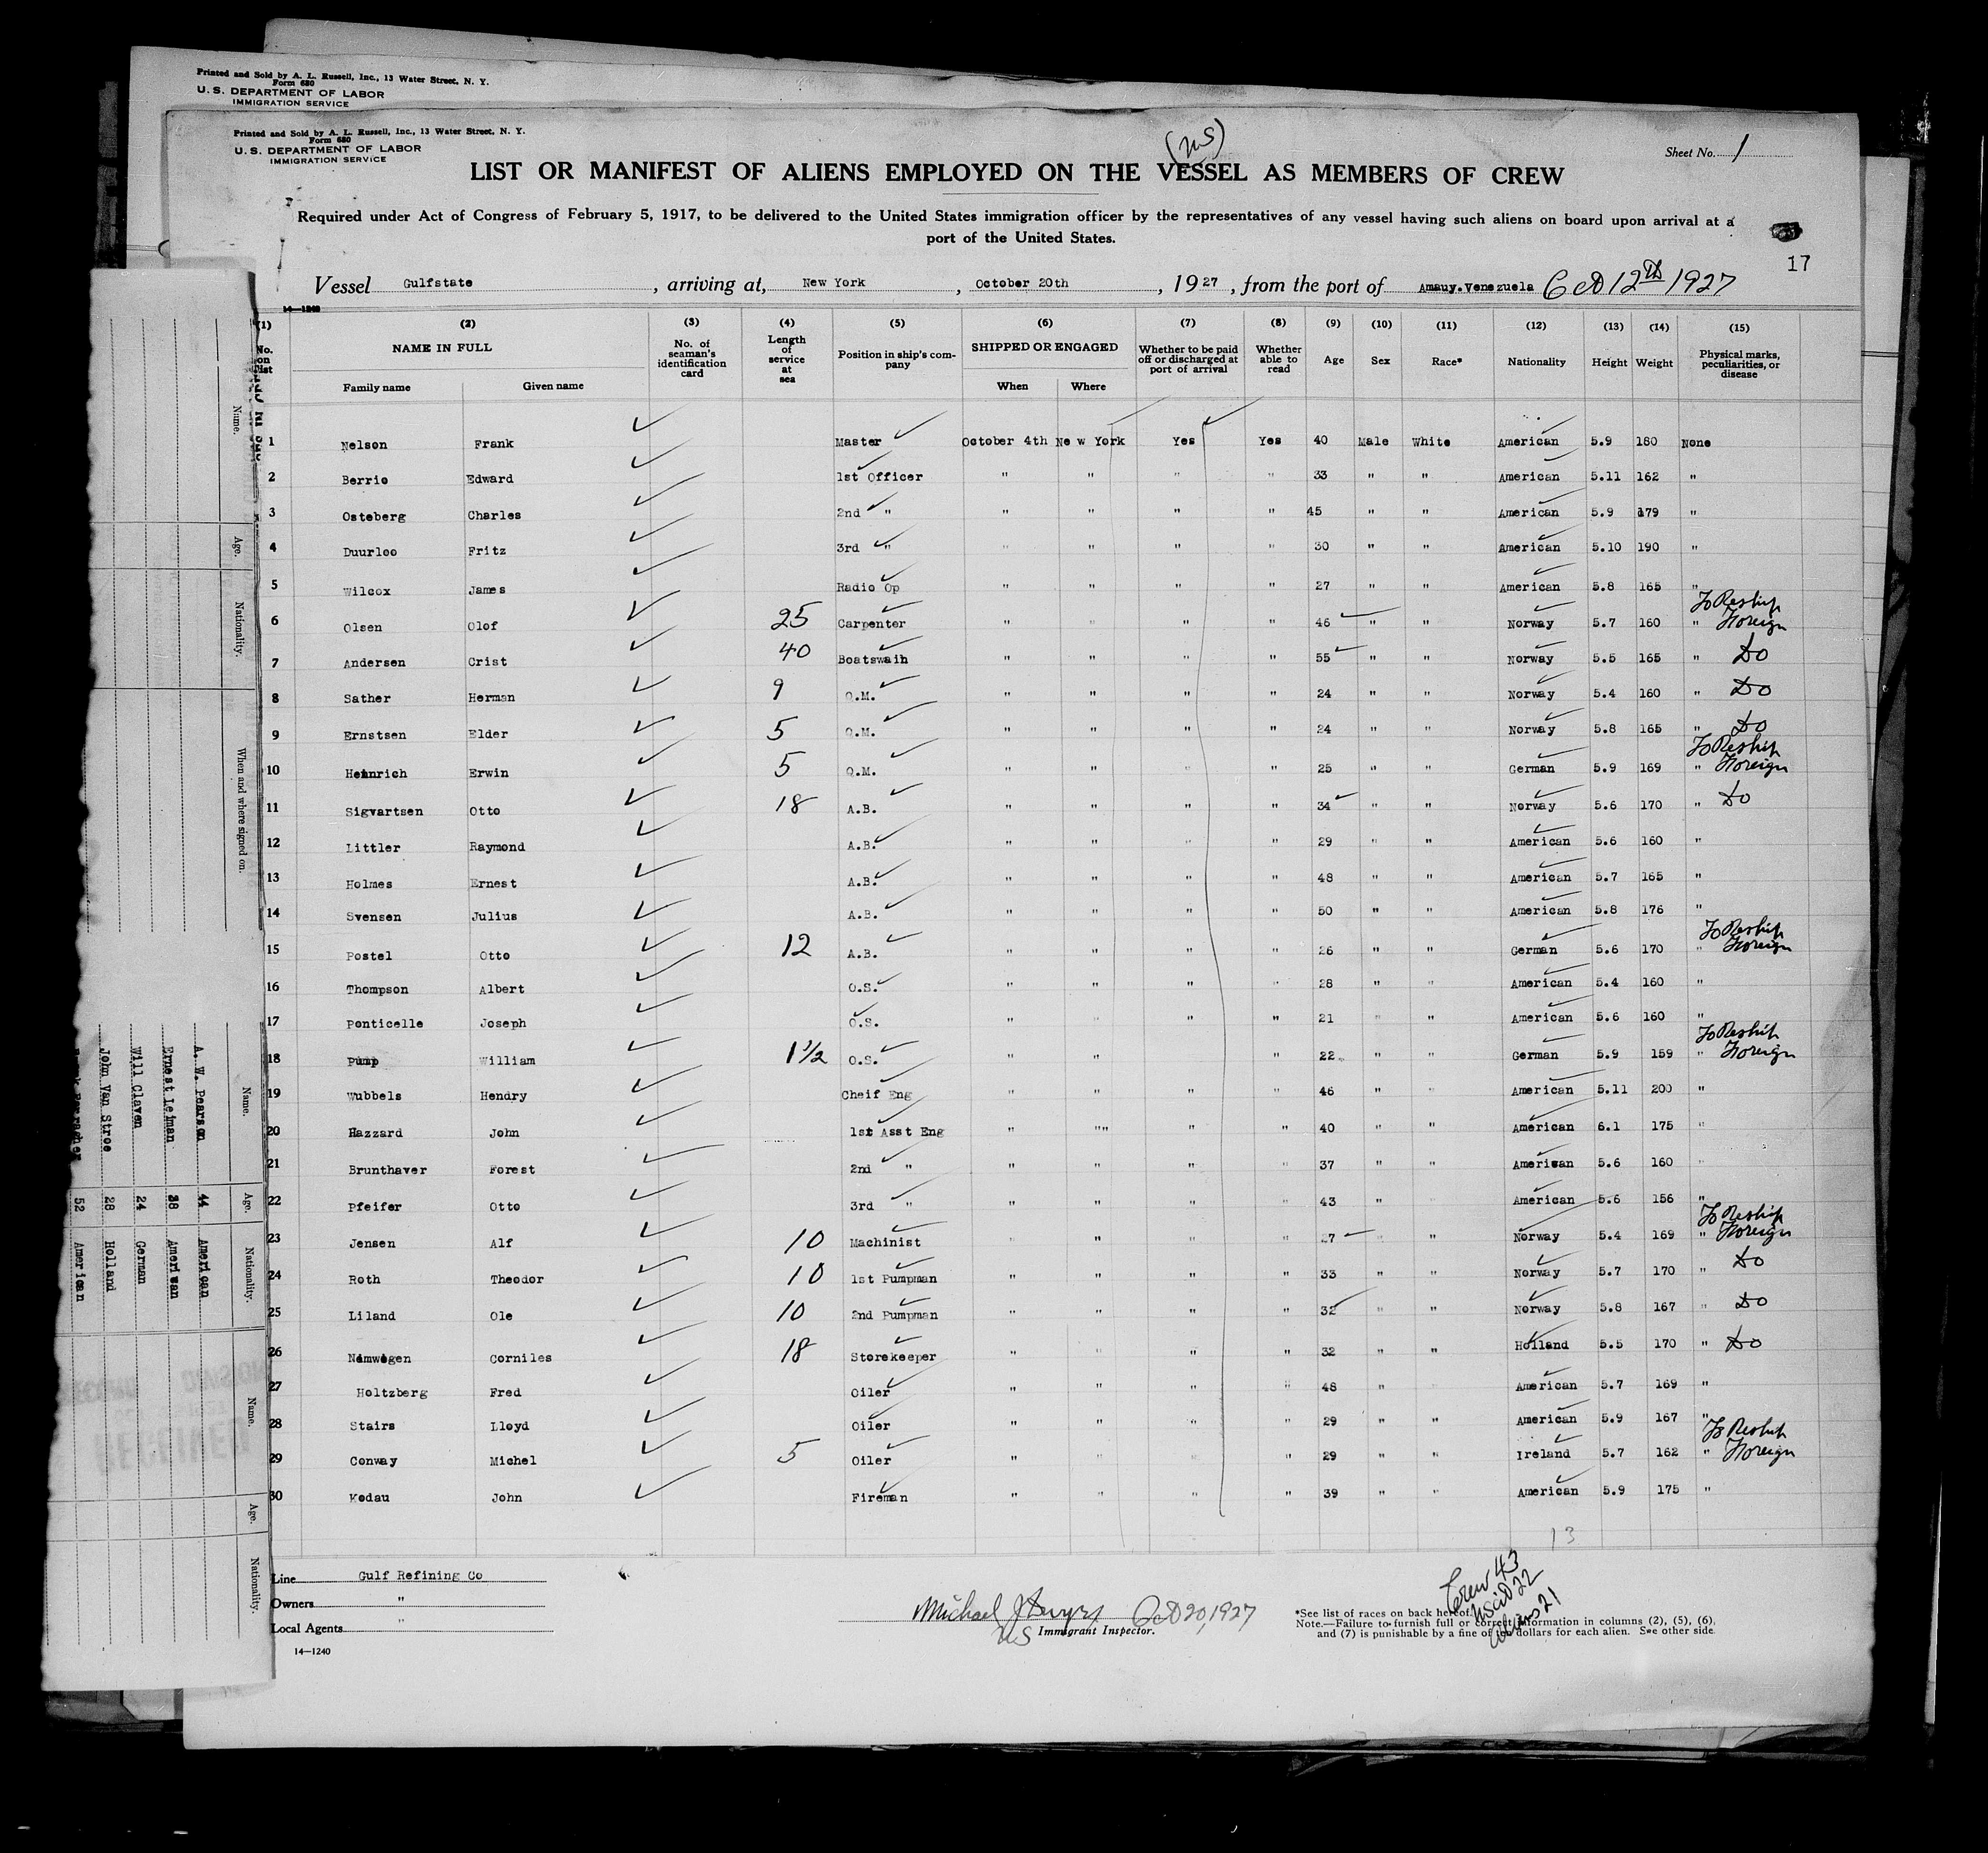 Printed and Sold by A. L. Russell, Inc., 13 Water Street, N. Y.
Form 680
U. S. DEPARTMENT OF LABOR
IMMIGRATION SERVICE
Printed and Sold by A. L. Russell, Inc., 13 Water Street, N. Y.
Form 680
U. S. DEPARTMENT OF LABOR
IMMIGRATION SERVICE
(US)
Sheet No. 1
LIST OR MANIFEST OF ALIENS EMPLOYED ON THE VESSEL AS MEMBERS OF CREW
Required under Act of Congress of February 5, 1917, to be delivered to the United States immigration officer by the representatives of any vessel having such aliens on board upon arrival at a
port of the United States.
17
Vessel Gulfstate, arriving at, New York, October 20th, 1927, from the port of Amauy.Venezuela Oct 12th 1927
14—1240
(1) (2) (3) (4) (5) (6) (7) (8) (9) (10) (11) (12) (13) (14) (15)
No. on list NAME IN FULL Family name Given name No. of seaman's identification card Length of service at sea Position in ship's company SHIPPED OR ENGAGED When Where Whether to be paid off or discharged at port of arrival Whether able to read Age Sex Race* Nationality Height Weight Physical marks, peculiarities, or disease
1 Nelson Frank Master October 4th New York Yes Yes 40 Male White American 5.9 180 None
2 Berrie Edward 1st Officer " " " " 33 " " American 5.11 162 "
3 Osteberg Charles 2nd " " " " " 45 " " American 5.9 179 "
4 Duurloo Fritz 3rd " " " " " 30 " " American 5.10 190 "
5 Wilcox James Radio Op " " " " 27 " " American 5.8 165 "
6 Olsen Olof 25 Carpenter " " " " 46 " " Norway 5.7 160 " To Reship Foreign
7 Andersen Crist 40 Boatswain " " " " 55 " " Norway 5.5 165 " Do
8 Sather Herman 9 Q.M. " " " " 24 " " Norway 5.4 160 " Do
9 Ernstsen Elder 5 Q.M. " " " " 24 " " Norway 5.8 165 " Do
10 Heinrich Erwin 5 Q.M. " " " " 25 " " German 5.9 169 " To Reship Foreign
11 Sigvartsen Otto 18 A.B. " " " " 34 " " Norway 5.6 170 " Do
12 Littler Raymond A.B. " " " " 29 " " American 5.6 160 "
13 Holmes Ernest A.B. " " " " 48 " " American 5.7 165 "
14 Svensen Julius A.B. " " " " 50 " " American 5.8 176 "
15 Postel Otto 12 A.B. " " " " 26 " " German 5.6 170 " To Reship Foreign
16 Thompson Albert O.S. " " " " 28 " " American 5.4 160 "
17 Ponticelle Joseph O.S. " " " " 21 " " American 5.6 160 "
18 Pump William 1½ O.S. " " " 22 " " German 5.9 159 " To Reship Foreign
19 Wubbels Hendry Cheif Eng " " " " 46 " " American 5.11 200 "
20 Hazzard John 1st Asst Eng " "" " " 40 " " American 6.1 175 "
21 Brunthaver Forest 2nd " " " " " 37 " " American 5.6 160 "
22 Pfeifer Otto 3rd " " " " " 43 " American 5.6 156 "
23 Jensen Alf 10 Machinist " " " " 27 " " Norway 5.4 169 " To Reship Foreign
24 Roth Theodor 10 1st Pumpman " " " " 33 " " Norway 5.7 170 " Do
25 Liland Ole 10 2nd Pumpman " " " " 32 " " Norway 5.8 167 " Do
26 Nimwegen Corniles 18 Storekeeper " " " " 32 " " Holland 5.5 170 " Do
27 Holtzberg Fred Oiler " " " " 48 " " American 5.7 169 "
28 Stairs Lloyd Oiler " " " " 29 " " American 5.9 167 "
29 Conway Michel 5 Oiler " " " " 29 " " Ireland 5.7 162 " To Reship Foreign
30 Kodau John Fireman " " " " 39 " " American 5.9 175 "
13
Line Gulf Refining Co
Owners "
Local Agents "
14—1240
Michael J Dwyer Oct 20, 1927
US Immigrant Inspector.
Crew 43
USCit 22
Aliens 21
*See list of races on back hereof.
Note.—Failure to furnish full or correct information in columns (2), (5), (6),
and (7) is punishable by a fine of ten dollars for each alien. See other side.
Name.
Age.
Nationality.
When and where signed on.
Name. Age. Nationality.
A. W. Pearson 44 American
Ernest Leiman 38 American
Will Claven 24 German
John Van Stroe 28 Holland
52 American
Name.
Age.
Nationality.
RECORD DIVISION
RECEIVED